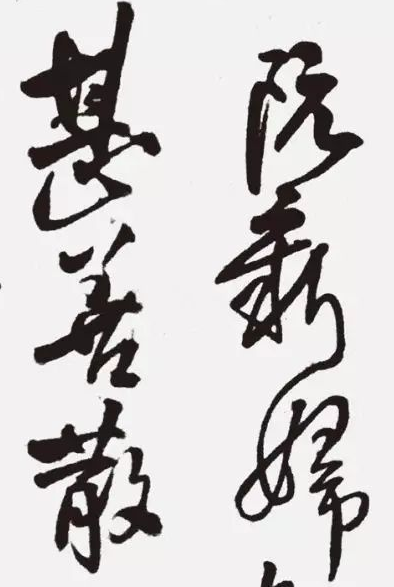 阮新婦
甚善散